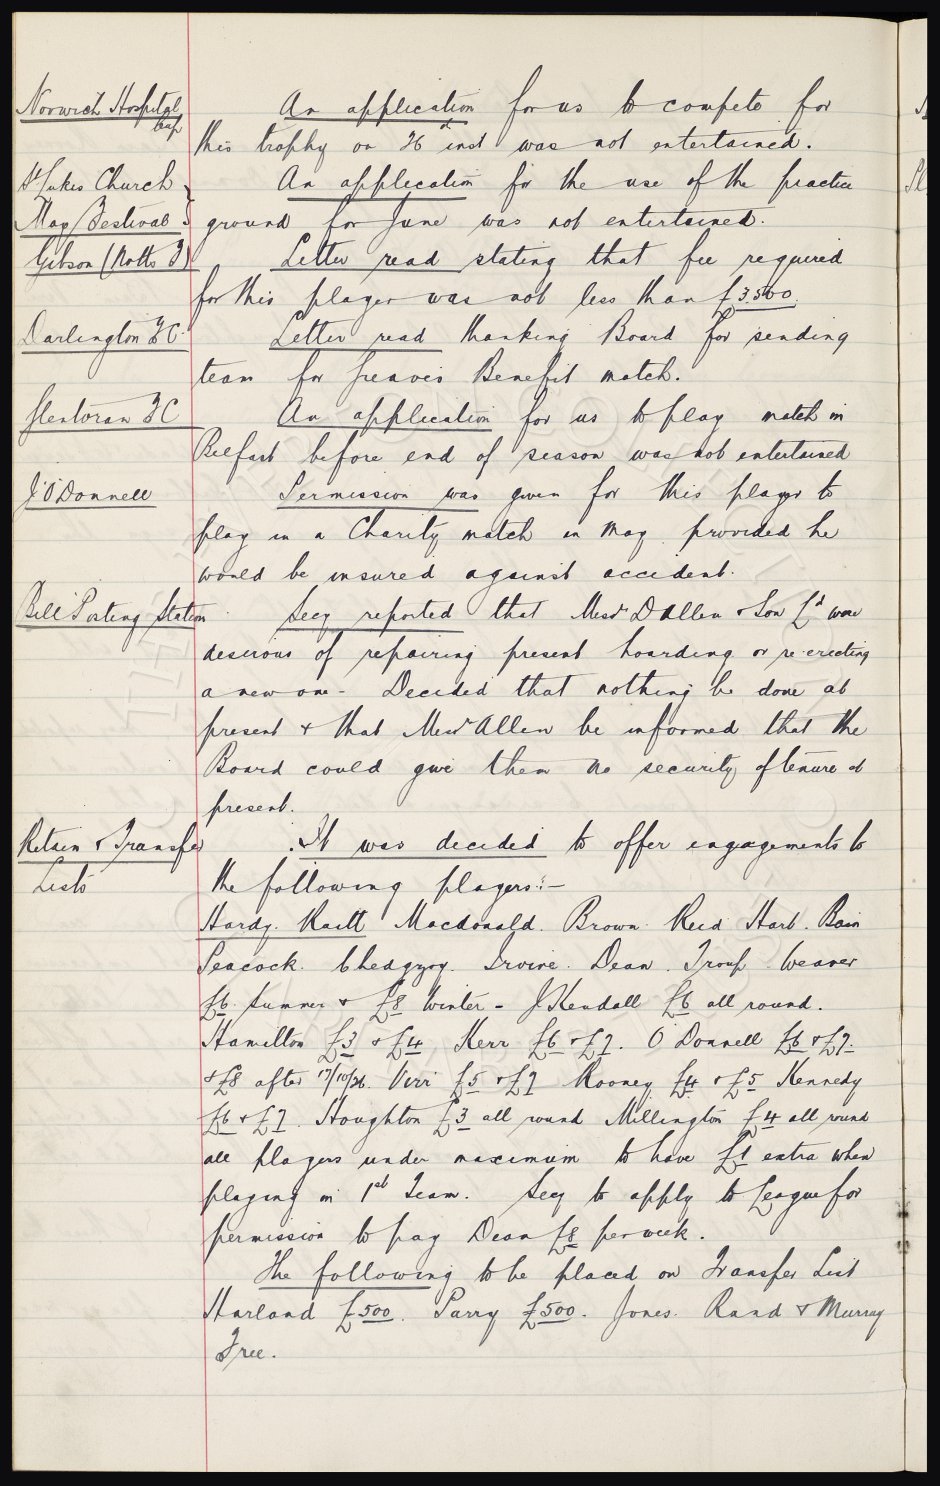 Norwich Hospital Cup
An application for us to compete for
this trophy on 26th inst was not entertained.
St Lukes Church
May Festival
An application for the use of the practice
ground for June was not entertained.
Gibson (Notts F)
Letter read stating that fee required
for this player was not less than £3500.
Darlington FC
Letter read thanking Board for sending
team for Greaves Benefit match.
Glentoran FC
An application for us to play match in
Belfast before end of season was not entertained
J O'Donnell
Permission was given for this player to
play in a Charity match in May provided he
would be insured against accident.
Bill Posting Station
Secy reported that Messrs D Allen & Son Ld were
desirous of repairing present hoarding or re-erecting
a new one - Decided that nothing be done at
present & that Messrs Allen be informed that the
Board could give them no security of tenure at
present.
Retain & Transfer
Lists
It was decided to offer engagements to
the following players:-
Hardy. Raitt Macdonald. Brown. Reid Hart. Bain
Peacock. Chedgzoy. Irvine. Dean. Troup. Weaver
£6 Summer & £8 Winter - J Kendall £6 all round.
Hamilton £3 & £4 Kerr £6 & £7. O'Donnell £6 & £7.
& £8 after 17/10/26. Virr £5 & £7 Rooney £4 & £5 Kennedy
£6 & £7. Houghton £3 all round Millington £4 all round
all players under maximum to have £1 extra when
playing in 1st Team. Secy to apply to League for
permission to pay Dean £8 per week.
The following to be placed on Transfer List
Harland £500. Parry £500. Jones. Rand & Murray
Free.